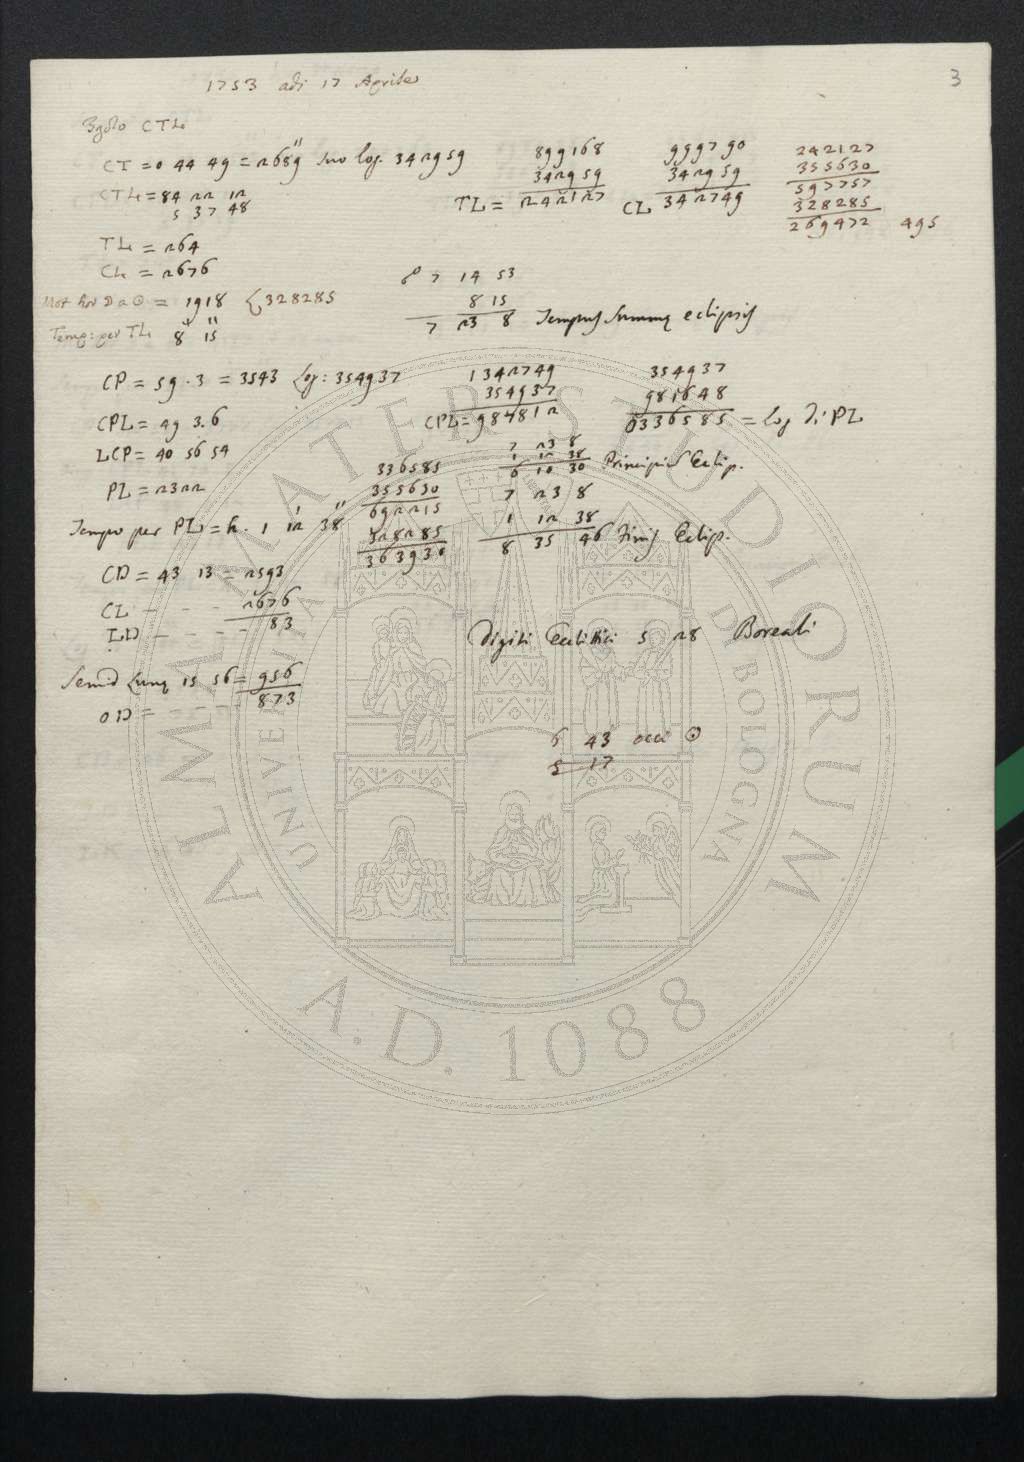 3
1753 adi 17 Aprile
3golo CTL
CT = 0 44 49 = 2689'' suo log. 342959
CTL = 84 22 12
5 37 48
899168
342959
TL = 242127
999790
342959
CL 342749
242127
355630
597757
328285
269472 495
TL = 264
CL = 2676
Mot hor D a ☉ = 1918 L 328285
Temp: per TL 8' 15''
☍ 7 14 53
8 15
7 23 8 Tempus summę eclipsis
CP = 59 . 3 = 3543 Log: 354937
CPL = 49 3.6
LCP = 40 56 54
PL = 2322
Tempo per PL = h. 1 12' 38''
1342749
354937
CPL = 987812
354937
981648
0336585 = log di PL
336585
355630
692215
328285
363930
7 23 8
1 12 38
6 10 30 Principius Eclip.
7 23 8
1 12 38
8 35 46 Finis Eclip.
CD = 43 13 = 2593
CL - - - 2676
LD - - - - 83
Semid Lunę 15 56 = 956
OD = - - - - 873
Digiti Eclittici 5 28 Boreali
6 43 occ ☉
5 17
ALMA MATER STUDIORUM
UNIVERSITÀ DI BOLOGNA
A.D. 1088